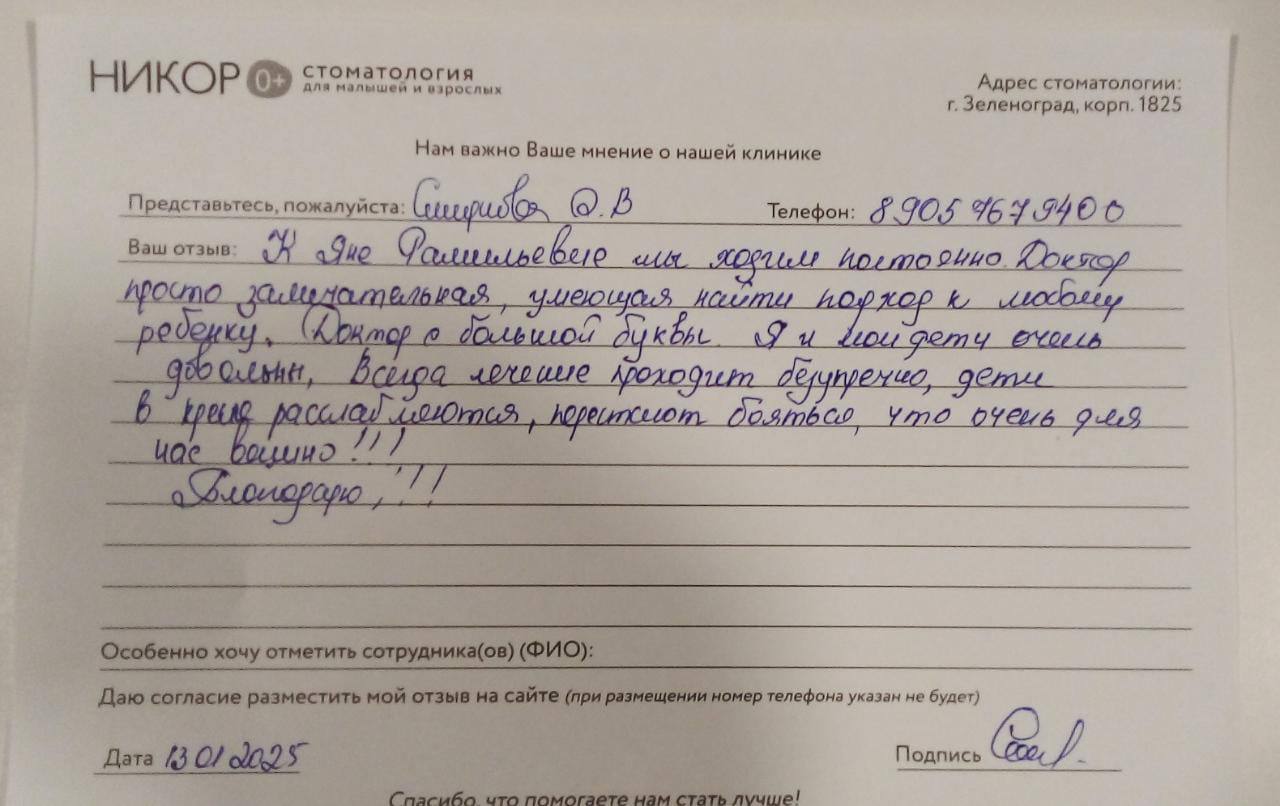 НИКОР 0+ СТОМАТОЛОГИЯ
для малышей и взрослых
Адрес стоматологии:
г. Зеленоград, корп. 1825
Нам важно Ваше мнение о нашей клинике
Представьтесь, пожалуйста: Смирнова О.В Телефон: 89057679400
Ваш отзыв: К Яне Рамильевне мы ходим постоянно. Доктор
просто замечательная, умеющая найти подход к любому
ребенку. Доктор с большой буквы. Я и мои дети очень
довольны, Всегда лечение проходит безупречно, дети
в кресле расслабляются, перестают бояться, что очень для
нас важно!!!
Благодарю,!!!
Особенно хочу отметить сотрудника(ов) (ФИО):
Даю согласие разместить мой отзыв на сайте (при размещении номер телефона указан не будет)
Дата 13 01 2025 Подпись
Спасибо, что помогаете нам стать лучше!